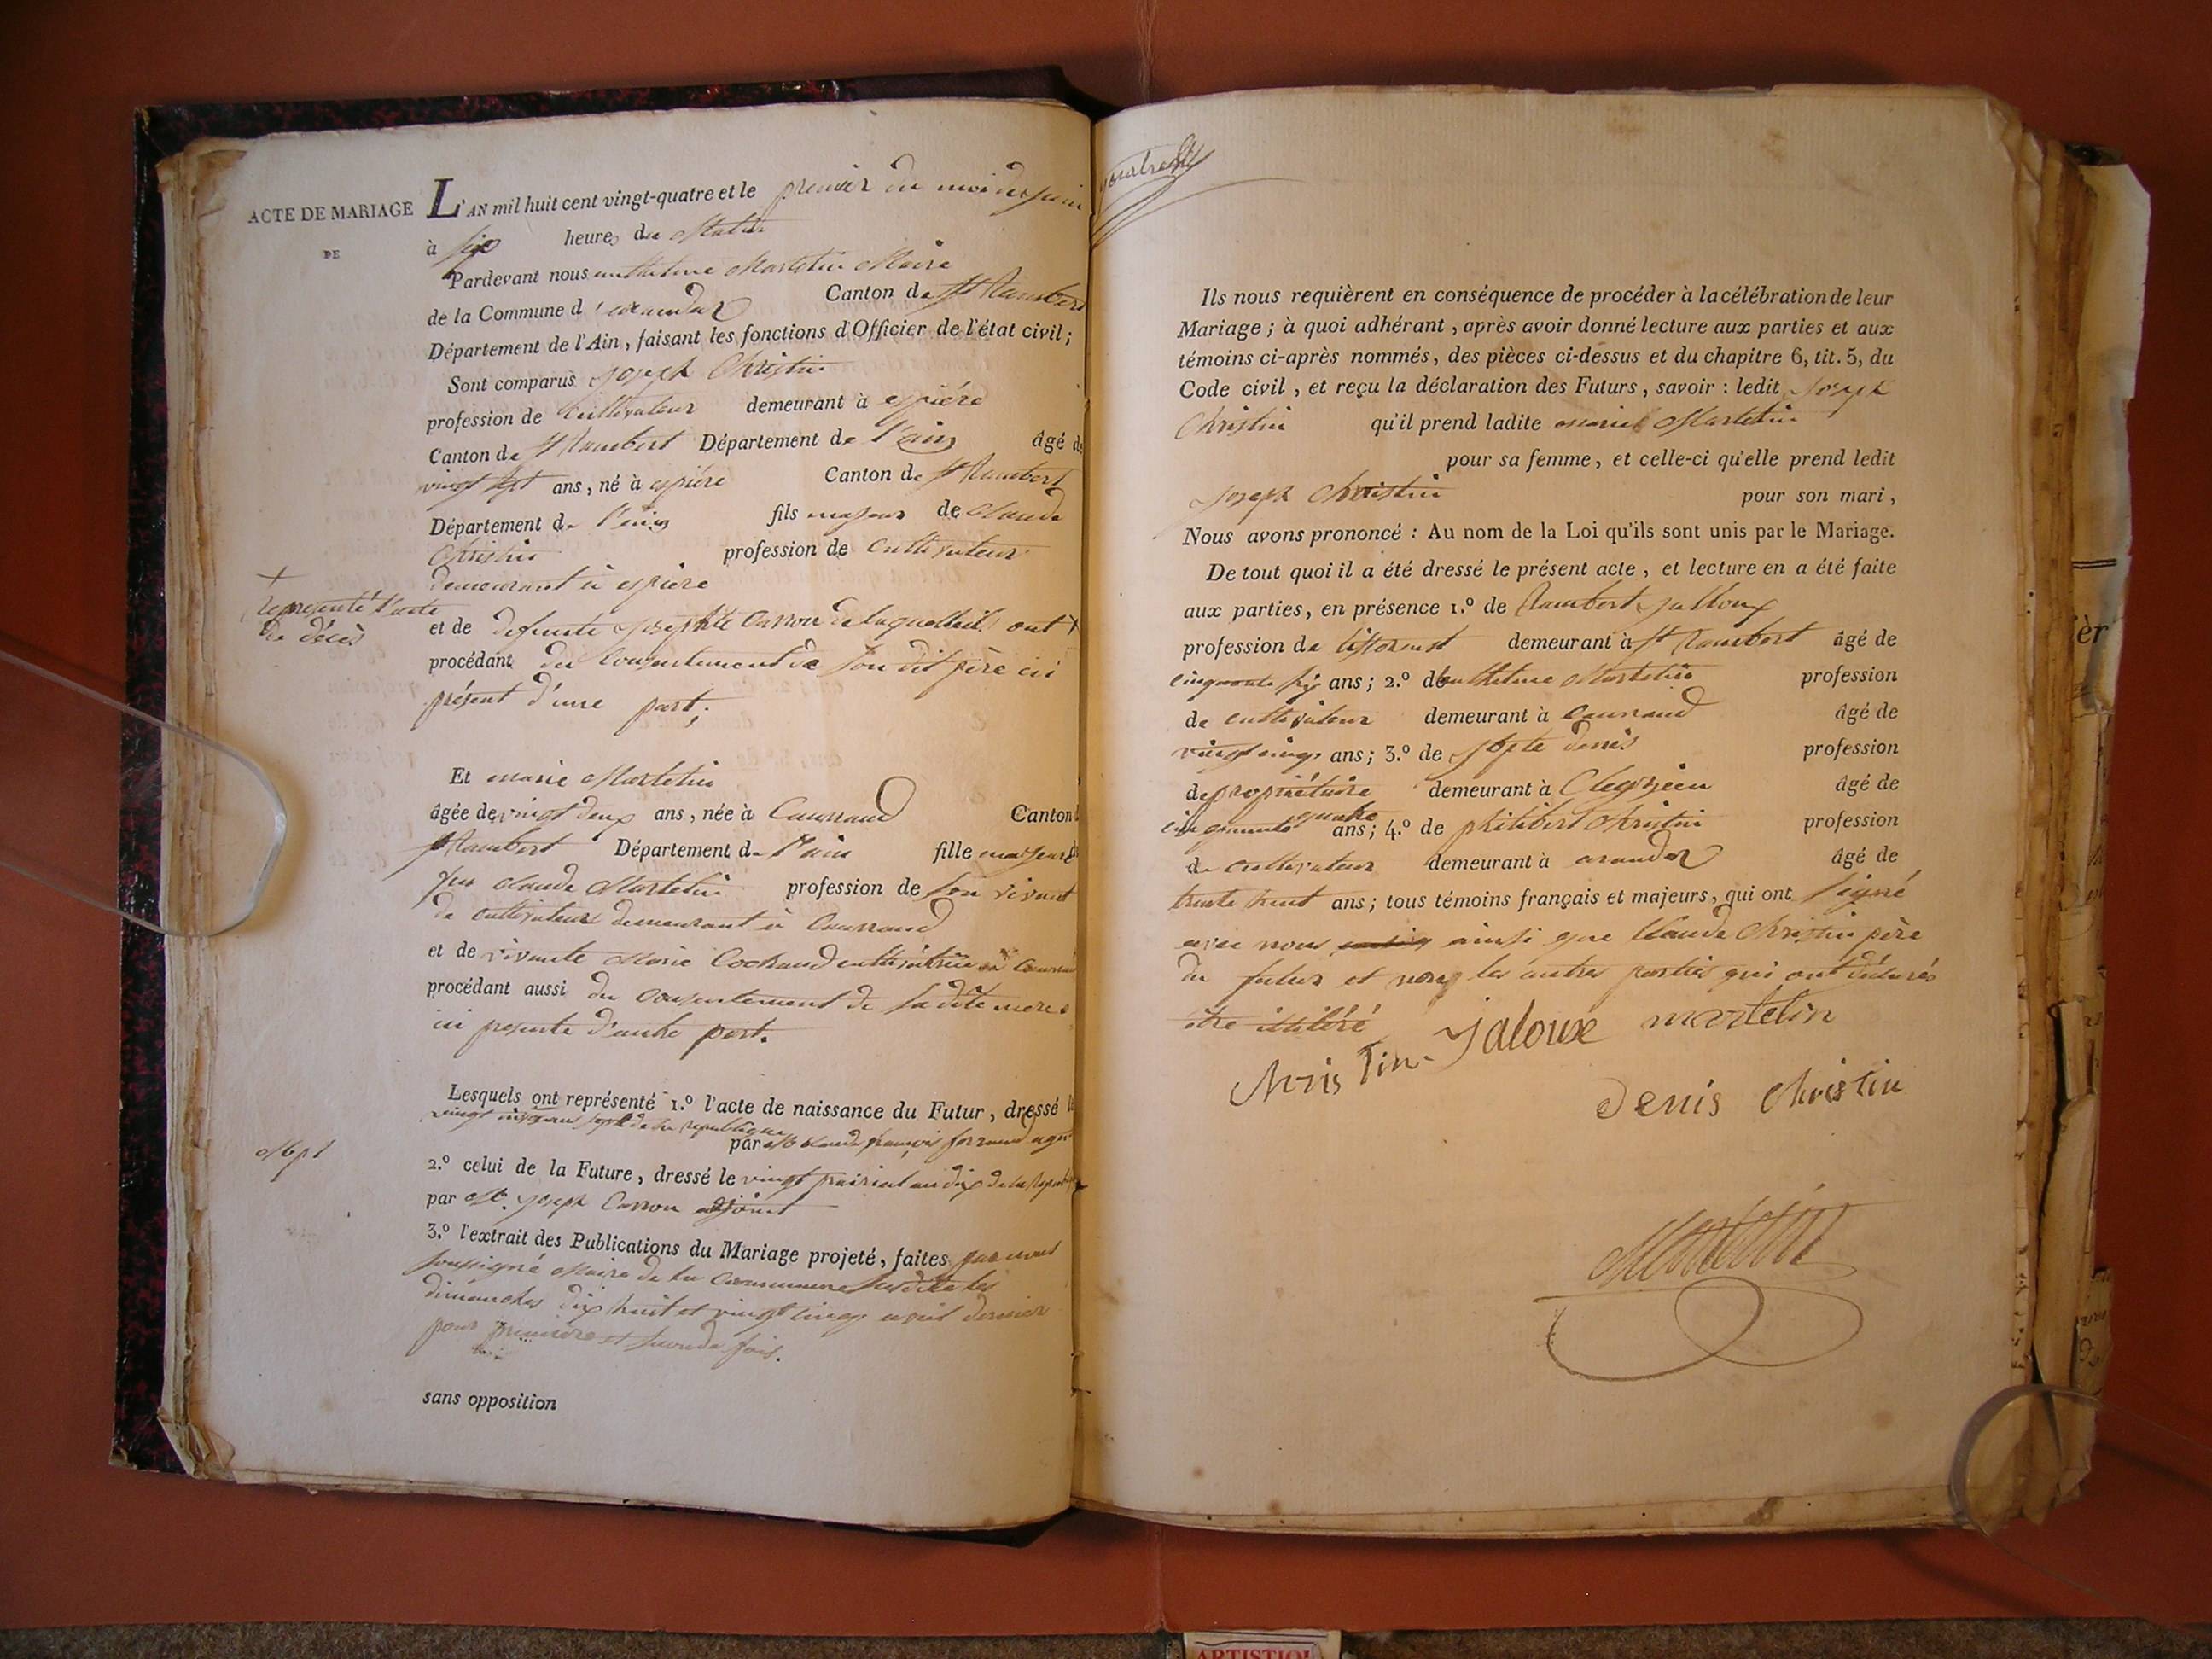 ACTE DE MARIAGE
DE
L'AN mil huit cent vingt-quatre et le premier du mois de juin
à six heures du Matin
Pardevant nous anthelme Martelin Maire
de la Commune d'arandas Canton de St Rambert
Département de l'Ain, faisant les fonctions d'Officier de l'état civil;
Sont comparus Joseph Christin
profession de cultivateur demeurant à
Canton de St Rambert Département de l'ain âgé de
vingt sept ans, né à Canton de St Rambert
Département de l'ain fils majeur de Claude
Christin profession de Cultivateur
demeurant à
+
représenté l'acte
de décès
et de defunte Josephte Carron ont +
procédant du Consentement de son dit père ici
présent d'une part;
Et marie Martelin
âgée de vingt deux ans, née à Canton
St Rambert Département de l'ain fille majeure
feu Claude Martelin profession de son vivant
de cultivateur demeurant à
et de vivante Marie Cochaud cultivatrice
procédant aussi du Consentement de sa dite mere
ici presente d'autre part.
Lesquels ont représenté 1.º l'acte de naissance du Futur, dressé le
de la république
par Me Claude françois agent
2.º celui de la Future, dressé le vingt prairial an dix de la
par Me Joseph Carron adjoint
3.º l'extrait des Publications du Mariage projeté, faites par nous
soussigné Maire de la Commune susdite les
dimanches dix huit et vingt cinq avril dernier
pour premiere et seconde fois.
sans opposition
Ils nous requièrent en conséquence de procéder à la célébration de leur
Mariage; à quoi adhérant, après avoir donné lecture aux parties et aux
témoins ci-après nommés, des pièces ci-dessus et du chapitre 6, tit. 5, du
Code civil, et reçu la déclaration des Futurs, savoir : ledit Joseph
Christin qu'il prend ladite marie Martelin
pour sa femme, et celle-ci qu'elle prend ledit
Joseph Christin pour son mari,
Nous avons prononcé : Au nom de la Loi qu'ils sont unis par le Mariage.
De tout quoi il a été dressé le présent acte, et lecture en a été faite
aux parties, en présence 1.º de Rambert Jalloux
profession de demeurant à St Rambert âgé de
cinquante six ans; 2.º d'anthelme Martelin profession
de cultivateur demeurant à âgé de
vingt cinq ans; 3.º de denis profession
de propriétaire demeurant à Cleyzieu âgé de
cinquante quatre ans; 4.º de philibert Christin profession
de cultivateur demeurant à arandas âgé de
trente huit ans; tous témoins français et majeurs, qui ont signé
avec nous ainsi que Claude Christin père
du futur et non les autres parties qui ont déclarés
être illitéré
Jaloux martelin
Christin
Denis Christin
Martelin
ARTISTIQU